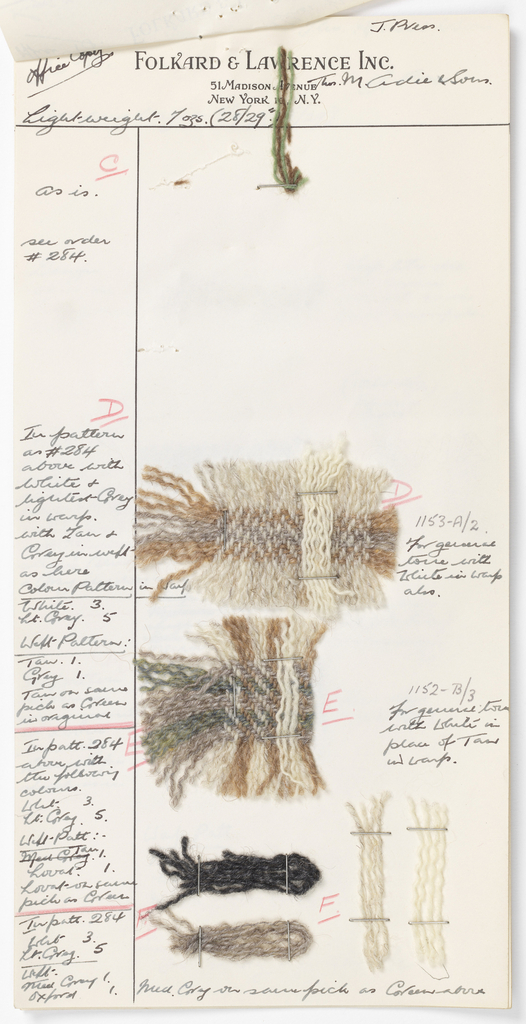 J. Press.
Office Copy
FOLKARD & LAWRENCE INC.
51 MADISON AVENUE
Thos. M. Adie & Sons.
NEW YORK N. Y.
Light-weight. 7 ozs. (28/29")
C
as is.
see order
# 284.
D
In pattern
as #284
above with
White &
lightest Gray
in warp.
with Tan &
Gray in weft-
as here
Colour Pattern in Warp
White. 3.
Lt. Gray. 5
Weft Pattern:
Tan. 1.
Gray 1
Tan on same
pick as Green
in original
D
1153-A/2
For general
tone with
White in warp
also.
E
In patt. 284
above with
the following
colours.
Whit. 3.
Lt. Gray. 5.
Weft-Patt:-
Med Gray Tan 1.
Lovat. 1.
Lovat on same
pick as Green
E
1152-B/3
For general tone
with White in
place of Tan
in warp.
F
In patt. 284
Whit 3.
Lt. Gray 5.
Weft-
Med. Gray 1.
Oxford 1.
F.
Med. Gray on same pick as Green above